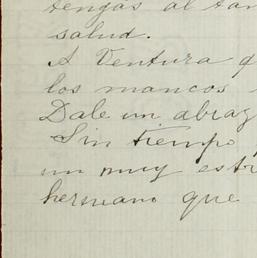 tengas al tan
salud.
A Ventura q
los mancos
Dale un abraz
Sin tiempo
un muy estr
hermano que